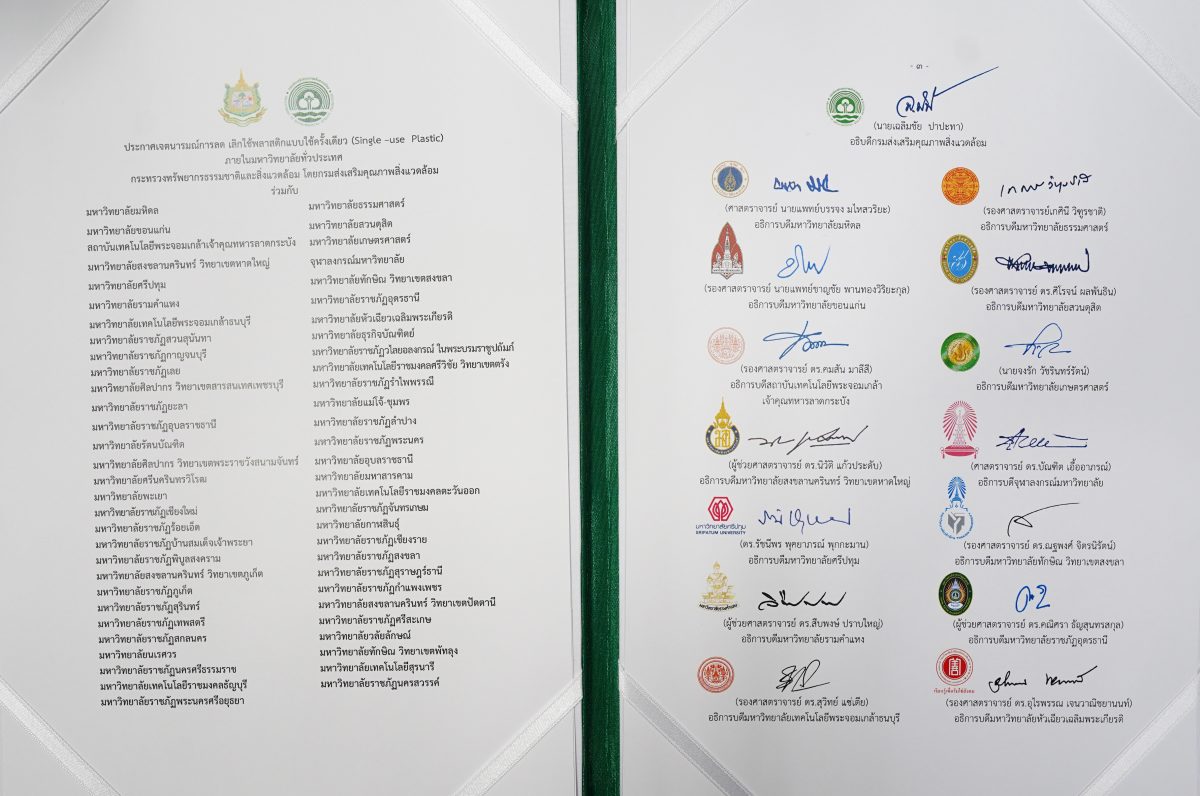 ประกาศเจตนารมณ์การลด เลิกใช้พลาสติกแบบใช้ครั้งเดียว (Single –use Plastic)
ภายในมหาวิทยาลัยทั่วประเทศ
กระทรวงทรัพยากรธรรมชาติและสิ่งแวดล้อม โดยกรมส่งเสริมคุณภาพสิ่งแวดล้อม
ร่วมกับ
มหาวิทยาลัยมหิดล
มหาวิทยาลัยขอนแก่น
สถาบันเทคโนโลยีพระจอมเกล้าเจ้าคุณทหารลาดกระบัง
มหาวิทยาลัยสงขลานครินทร์ วิทยาเขตหาดใหญ่
มหาวิทยาลัยศรีปทุม
มหาวิทยาลัยรามคำแหง
มหาวิทยาลัยเทคโนโลยีพระจอมเกล้าธนบุรี
มหาวิทยาลัยราชภัฏสวนสุนันทา
มหาวิทยาลัยราชภัฏกาญจนบุรี
มหาวิทยาลัยราชภัฏเลย
มหาวิทยาลัยศิลปากร วิทยาเขตสารสนเทศเพชรบุรี
มหาวิทยาลัยราชภัฏยะลา
มหาวิทยาลัยราชภัฏอุบลราชธานี
มหาวิทยาลัยรัตนบัณฑิต
มหาวิทยาลัยศิลปากร วิทยาเขตพระราชวังสนามจันทร์
มหาวิทยาลัยศรีนครินทรวิโรฒ
มหาวิทยาลัยพะเยา
มหาวิทยาลัยราชภัฏเชียงใหม่
มหาวิทยาลัยราชภัฏร้อยเอ็ด
มหาวิทยาลัยราชภัฏบ้านสมเด็จเจ้าพระยา
มหาวิทยาลัยราชภัฏพิบูลสงคราม
มหาวิทยาลัยสงขลานครินทร์ วิทยาเขตภูเก็ต
มหาวิทยาลัยราชภัฏภูเก็ต
มหาวิทยาลัยราชภัฏสุรินทร์
มหาวิทยาลัยราชภัฏเทพสตรี
มหาวิทยาลัยราชภัฏสกลนคร
มหาวิทยาลัยนเรศวร
มหาวิทยาลัยราชภัฏนครศรีธรรมราช
มหาวิทยาลัยเทคโนโลยีราชมงคลธัญบุรี
มหาวิทยาลัยราชภัฏพระนครศรีอยุธยา
มหาวิทยาลัยธรรมศาสตร์
มหาวิทยาลัยสวนดุสิต
มหาวิทยาลัยเกษตรศาสตร์
จุฬาลงกรณ์มหาวิทยาลัย
มหาวิทยาลัยทักษิณ วิทยาเขตสงขลา
มหาวิทยาลัยราชภัฏอุดรธานี
มหาวิทยาลัยหัวเฉียวเฉลิมพระเกียรติ
มหาวิทยาลัยธุรกิจบัณฑิตย์
มหาวิทยาลัยราชภัฏวไลยอลงกรณ์ ในพระบรมราชูปถัมภ์
มหาวิทยาลัยเทคโนโลยีราชมงคลศรีวิชัย วิทยาเขตตรัง
มหาวิทยาลัยราชภัฏรำไพพรรณี
มหาวิทยาลัยแม่โจ้-ชุมพร
มหาวิทยาลัยราชภัฏลำปาง
มหาวิทยาลัยราชภัฏพระนคร
มหาวิทยาลัยอุบลราชธานี
มหาวิทยาลัยมหาสารคาม
มหาวิทยาลัยเทคโนโลยีราชมงคลตะวันออก
มหาวิทยาลัยราชภัฏจันทรเกษม
มหาวิทยาลัยกาฬสินธุ์
มหาวิทยาลัยราชภัฏเชียงราย
มหาวิทยาลัยราชภัฏสงขลา
มหาวิทยาลัยราชภัฏสุราษฎร์ธานี
มหาวิทยาลัยราชภัฏกำแพงเพชร
มหาวิทยาลัยสงขลานครินทร์ วิทยาเขตปัตตานี
มหาวิทยาลัยราชภัฏศรีสะเกษ
มหาวิทยาลัยวลัยลักษณ์
มหาวิทยาลัยทักษิณ วิทยาเขตพัทลุง
มหาวิทยาลัยเทคโนโลยีสุรนารี
มหาวิทยาลัยราชภัฏนครสวรรค์
- ๓ -
(นายเฉลิมชัย ปาปะทา)
อธิบดีกรมส่งเสริมคุณภาพสิ่งแวดล้อม
(ศาสตราจารย์ นายแพทย์บรรจง มไหสวริยะ)
อธิการบดีมหาวิทยาลัยมหิดล
(รองศาสตราจารย์เกศินี วิฑูรชาติ)
อธิการบดีมหาวิทยาลัยธรรมศาสตร์
(รองศาสตราจารย์ นายแพทย์ชาญชัย พานทองวิริยะกุล)
อธิการบดีมหาวิทยาลัยขอนแก่น
(รองศาสตราจารย์ ดร.ศิโรจน์ ผลพันธิน)
อธิการบดีมหาวิทยาลัยสวนดุสิต
(รองศาสตราจารย์ ดร.คมสัน มาลีสี)
อธิการบดีสถาบันเทคโนโลยีพระจอมเกล้า
เจ้าคุณทหารลาดกระบัง
(นายจงรัก วัชรินทร์รัตน์)
อธิการบดีมหาวิทยาลัยเกษตรศาสตร์
(ผู้ช่วยศาสตราจารย์ ดร.นิวัติ แก้วประดับ)
อธิการบดีมหาวิทยาลัยสงขลานครินทร์ วิทยาเขตหาดใหญ่
(ศาสตราจารย์ ดร.บัณฑิต เอื้ออาภรณ์)
อธิการบดีจุฬาลงกรณ์มหาวิทยาลัย
มหาวิทยาลัยศรีปทุม
SRIPATUM UNIVERSITY
(ดร.รัชนีพร พุคยาภรณ์ พุกกะมาน)
อธิการบดีมหาวิทยาลัยศรีปทุม
(รองศาสตราจารย์ ดร.ณฐพงศ์ จิตรนิรัตน์)
อธิการบดีมหาวิทยาลัยทักษิณ วิทยาเขตสงขลา
(ผู้ช่วยศาสตราจารย์ ดร.สืบพงษ์ ปราบใหญ่)
อธิการบดีมหาวิทยาลัยรามคำแหง
(ผู้ช่วยศาสตราจารย์ ดร.คณิศรา ธัญสุนทรสกุล)
อธิการบดีมหาวิทยาลัยราชภัฏอุดรธานี
(รองศาสตราจารย์ ดร.สุวิทย์ แซ่เตีย)
อธิการบดีมหาวิทยาลัยเทคโนโลยีพระจอมเกล้าธนบุรี
เรียนรู้เพื่อรับใช้สังคม
(รองศาสตราจารย์ ดร.อุไรพรรณ เจนวาณิชยานนท์)
อธิการบดีมหาวิทยาลัยหัวเฉียวเฉลิมพระเกียรติ